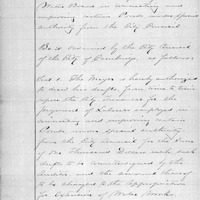 Water Board in connecting and
improving certain Ponds under special
authority from the City Council
Be it ordained by the City Council
of the City of Cambridge, as follows
Sect 1. The Mayor is hereby authorized
to draw his drafts, from time to time
upon the City Treasurer for the
payment of Laborers employed in
connecting and improving certain
Ponds under special authority
from the City Council for the sum
of One Thousand Dollars each, such
drafts to be countersigned by the
Auditor and the amount thereof
to be charged to the Appropriation
for Extension of Water Works